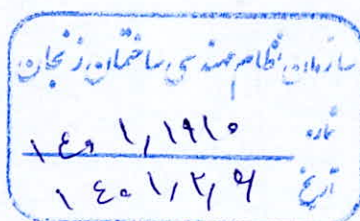 سازمان نظام مهندسی ساختمان زنجان
شماره ۱۴۰۱,۱۹۱۰
تاریخ ۱۴۰۱,۲,۶